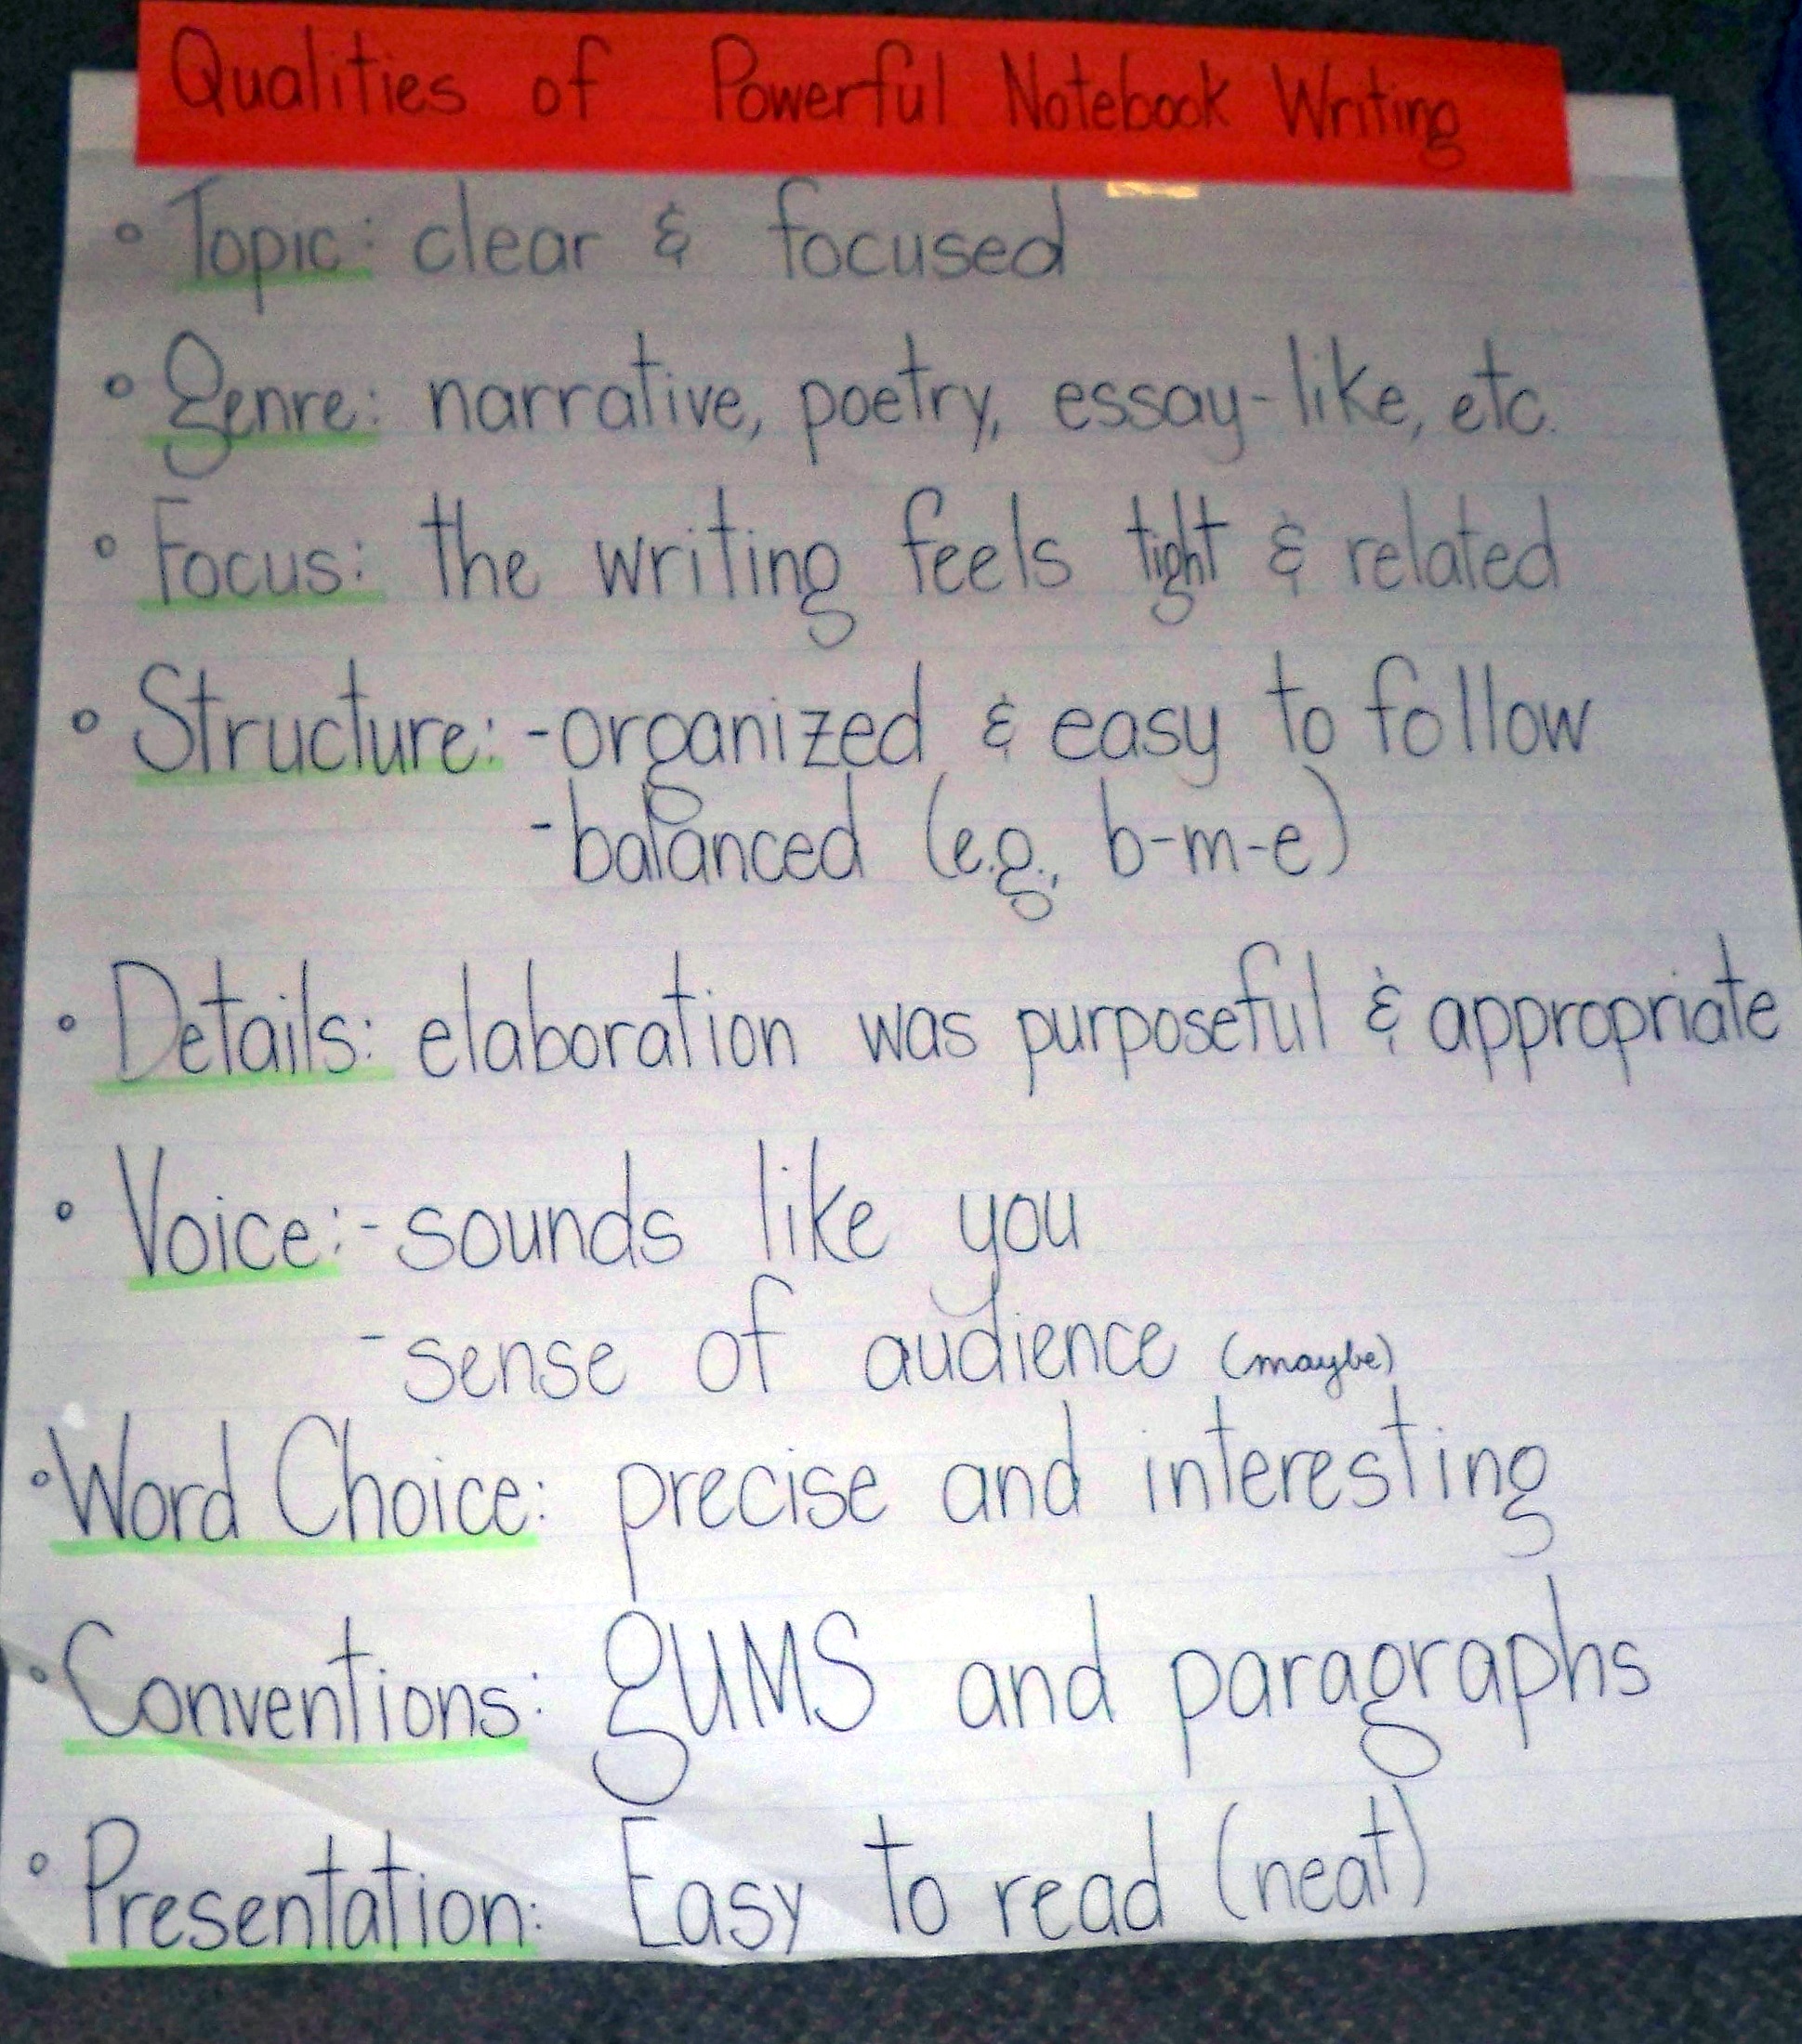 Qualities of Powerful Notebook Writing
• Topic: clear & focused
• Genre: narrative, poetry, essay-like, etc.
• Focus: the writing feels tight & related
• Structure: -organized & easy to follow
-balanced (e.g., b-m-e)
• Details: elaboration was purposeful & appropriate
• Voice: -sounds like you
-sense of audience (maybe)
• Word Choice: precise and interesting
• Conventions: gUMS and paragraphs
• Presentation: Easy to read (neat)